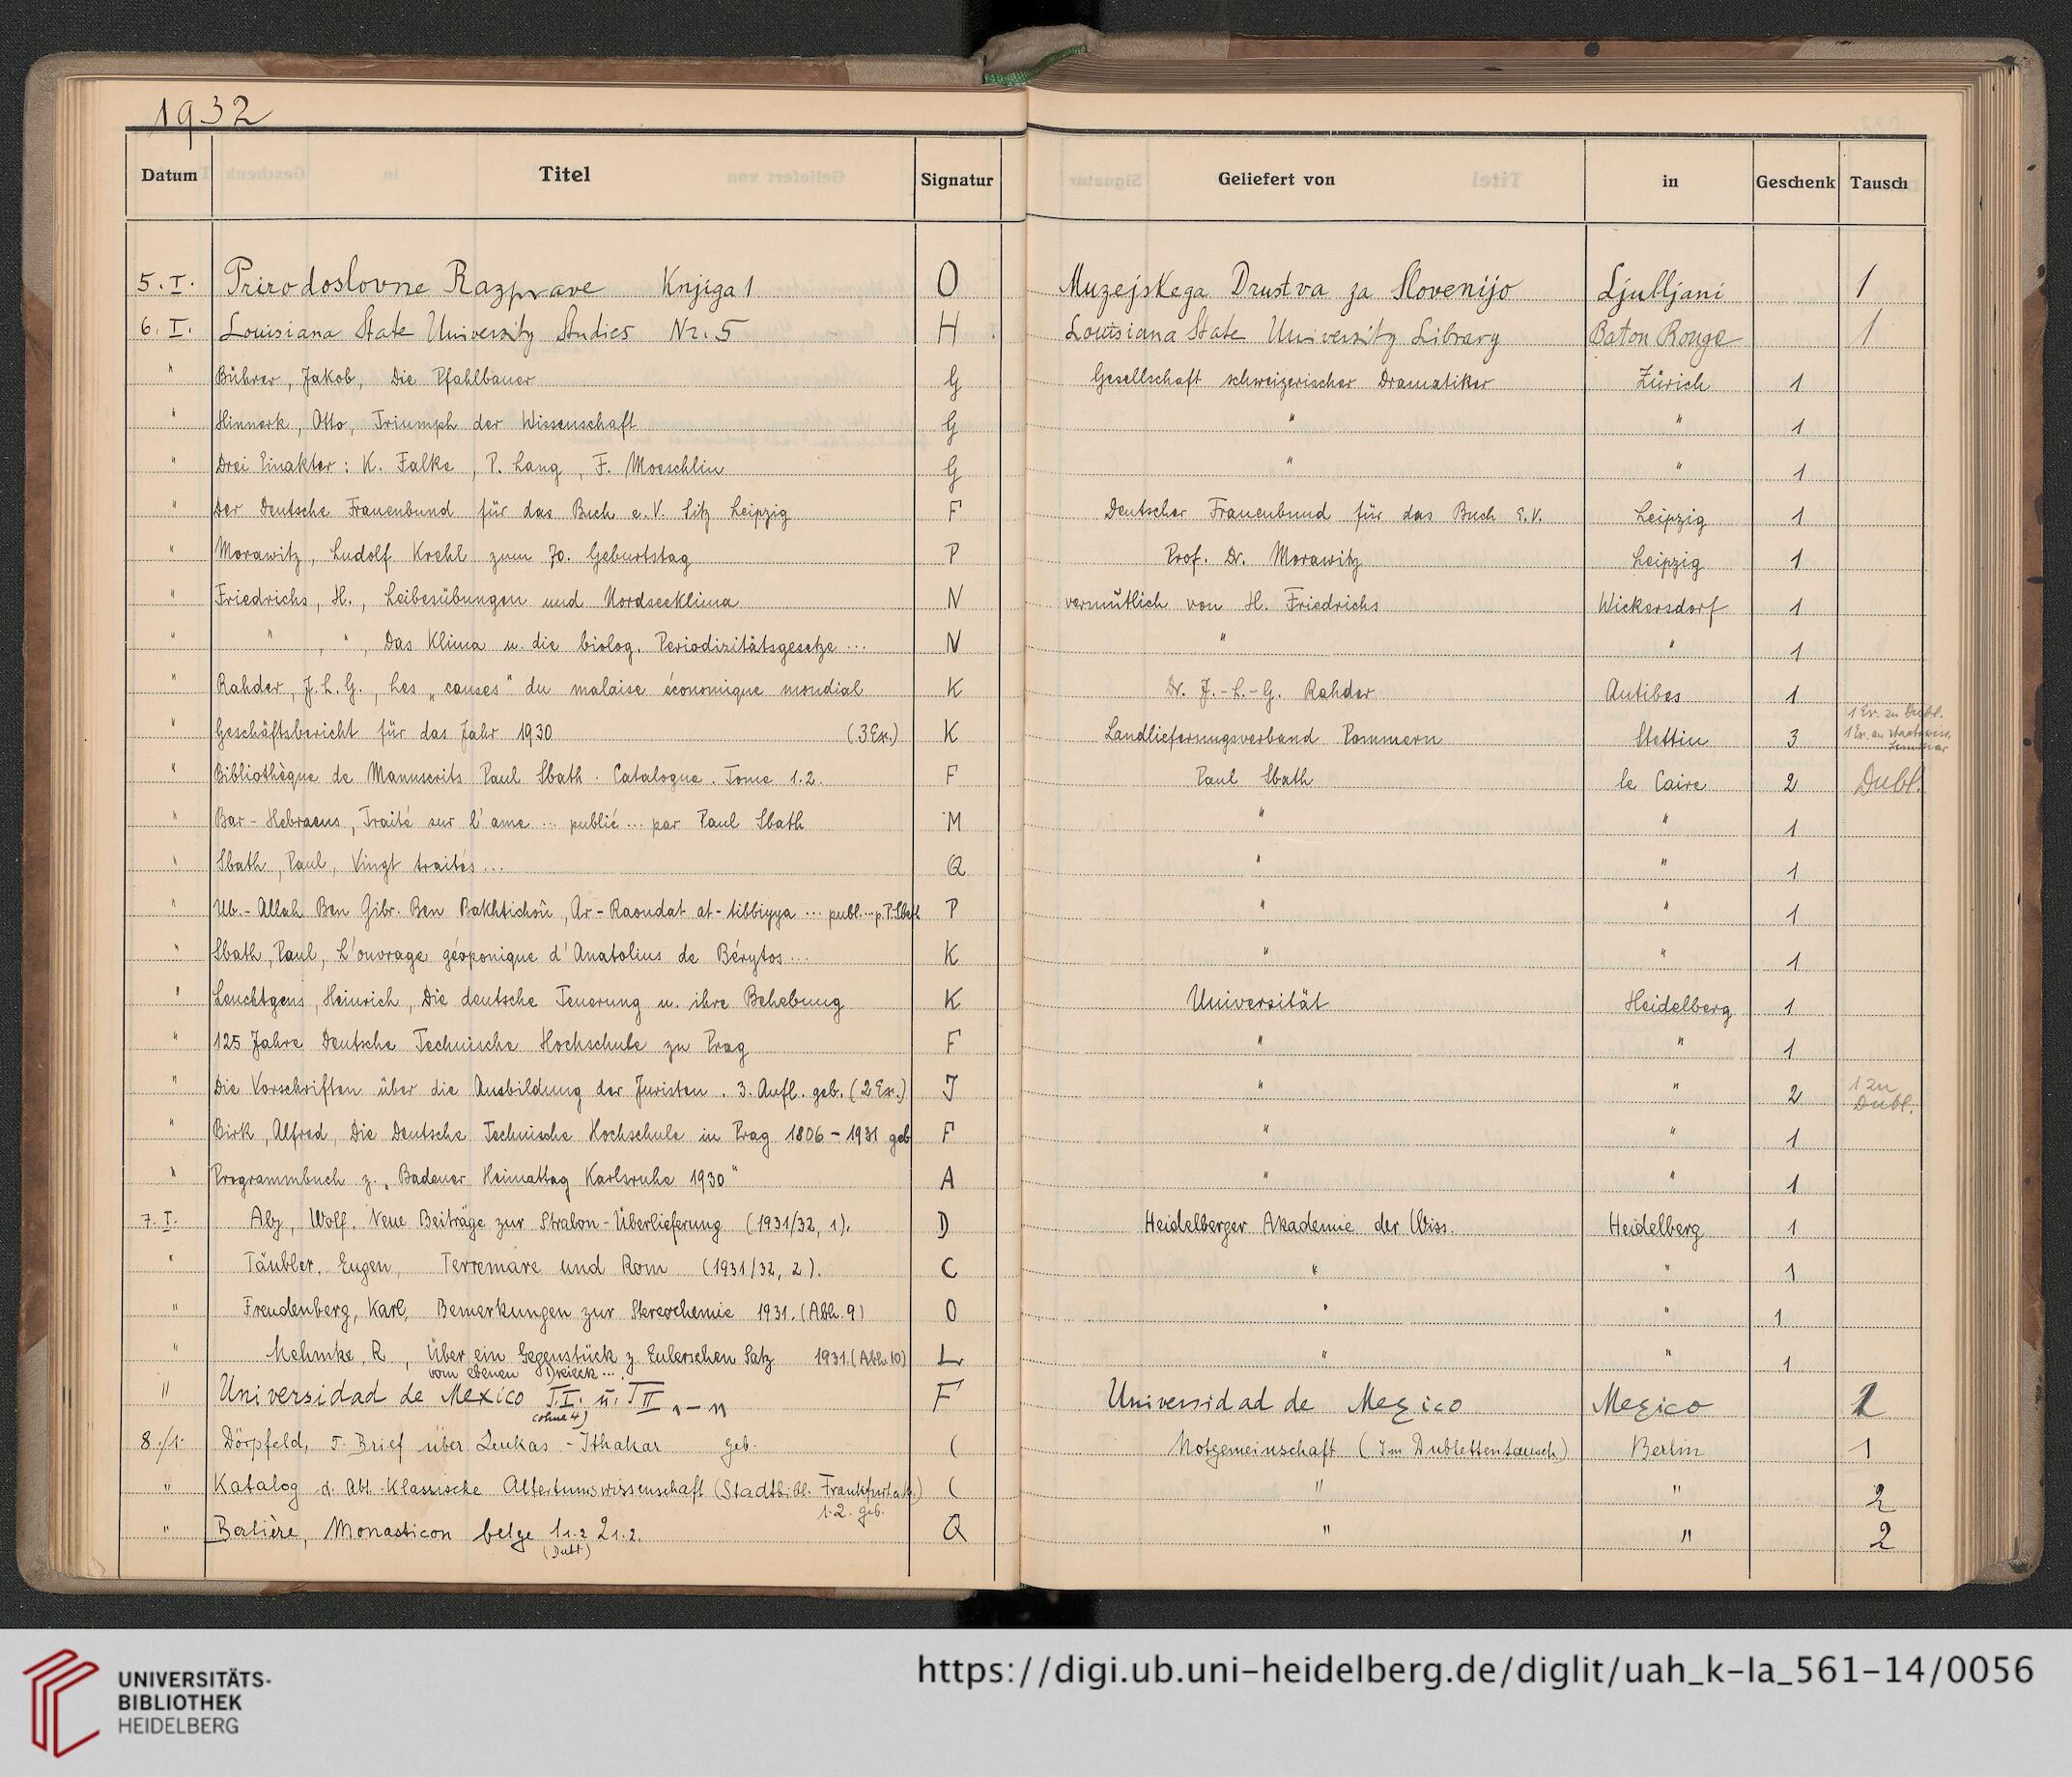 1932
Datum Titel Signatur Geliefert von in Geschenk Tausch
5. I. Prirodoslovne Razprave Knjiga 1 O Muzejskega Drustva za Slovenijo Ljubljani 1
6. I. Louisiana State University Studies Nr. 5 H Louisiana State University Library Baton Rouge 1
" Bührer, Jakob, Die Pfahlbauer G Gesellschaft schweizerischer Dramatiker Zürich 1
" Hinnerk, Otto, Triumph der Wissenschaft G " " 1
" Drei Einakter: K. Falke, P. Lang, F. Moeschlin G " " 1
" Der Deutsche Frauenbund für das Buch e. V. Sitz Leipzig F Deutscher Frauenbund für das Buch E.V. Leipzig 1
" Morawitz, Ludolf Krehl zum 70. Geburtstag P Prof. Dr. Morawitz Leipzig 1
" Friedrichs, H., Leibesübungen und Nordseeklima N vermutlich von H. Friedrichs Wickersdorf 1
" " , " , Das Klima u. die biolog. Periodizitätsgesetze ... N " " 1
" Rahder, J. L. G., Les „causes" du malaise économique mondial K Dr. J.-L.-G. Rahder Antibes 1
1 Ex. zu Dubl.
" Geschäftsbericht für das Jahr 1930 (3 Ex.) K Landlieferungsverband Pommern Stettin 3 1 Ex. an Staatswiss.
Seminar
" Bibliothèque de Manuscrits Paul Sbath. Catalogue. Tome 1.2. F Paul Sbath le Caire 2 Dubl.
" Bar-Hebraeus, Traité sur l'ame ... publié ... par Paul Sbath M " " 1
" Sbath, Paul, Vingt traités ... Q " " 1
" Ub.-Allah Ben Gibr. Ben Bakhtichoû, Ar-Raoudat at-tibbiyya ... publ. ... p. P. Sbath P " " 1
" Sbath, Paul, L'ouvrage géoponique d'Anatolius de Bérytos ... K " " 1
" Leuchtgens, Heinrich, Die deutsche Teuerung u. ihre Behebung K Universität Heidelberg 1
" 125 Jahre Deutsche Technische Hochschule zu Prag F " " 1
" Die Vorschriften über die Ausbildung der Juristen. 3. Aufl. geb. (2 Ex.) J " " 2 1 zu
Dubl.
" Birk, Alfred, Die Deutsche Technische Hochschule in Prag 1806-1931 geb F " " 1
" Programmbuch z. „Badener Heimattag Karlsruhe 1930" A " " 1
7. I. Aly, Wolf. Neue Beiträge zur Strabon-Überlieferung (1931/32, 1). D Heidelberger Akademie der Wiss. Heidelberg 1
" Täubler, Eugen, Terremare und Rom (1931/32, 2). C " " 1
" Freudenberg, Karl, Bemerkungen zur Stereochemie 1931. (Abh. 9) O " " 1
" Mehmke, R., Über ein Gegenstück z. Eulerschen Satz 1931. (Abh. 10) L " " 1
vom ebenen Dreieck ....
" Universidad de Mexico T.I. u. T II 1-11 F Universidad de Mexico Mexico 1
(ohne 4)
8./1. Dörpfeld, 5. Brief über Leukas-Ithaka geb. C Notgemeinschaft (Im Dublettentausch) Berlin 1
" Katalog d. Abt. Klassische Altertumswissenschaft (Stadtbibl. Frankfurt a.M.) C " " 2
1.2. geb.
" Berlière, Monasticon belge 1 1.2 2 1.2. Q " " 2
(Dubl.)
UNIVERSITÄTS-
BIBLIOTHEK
HEIDELBERG
https://digi.ub.uni-heidelberg.de/diglit/uah_k-Ia_561-14/0056